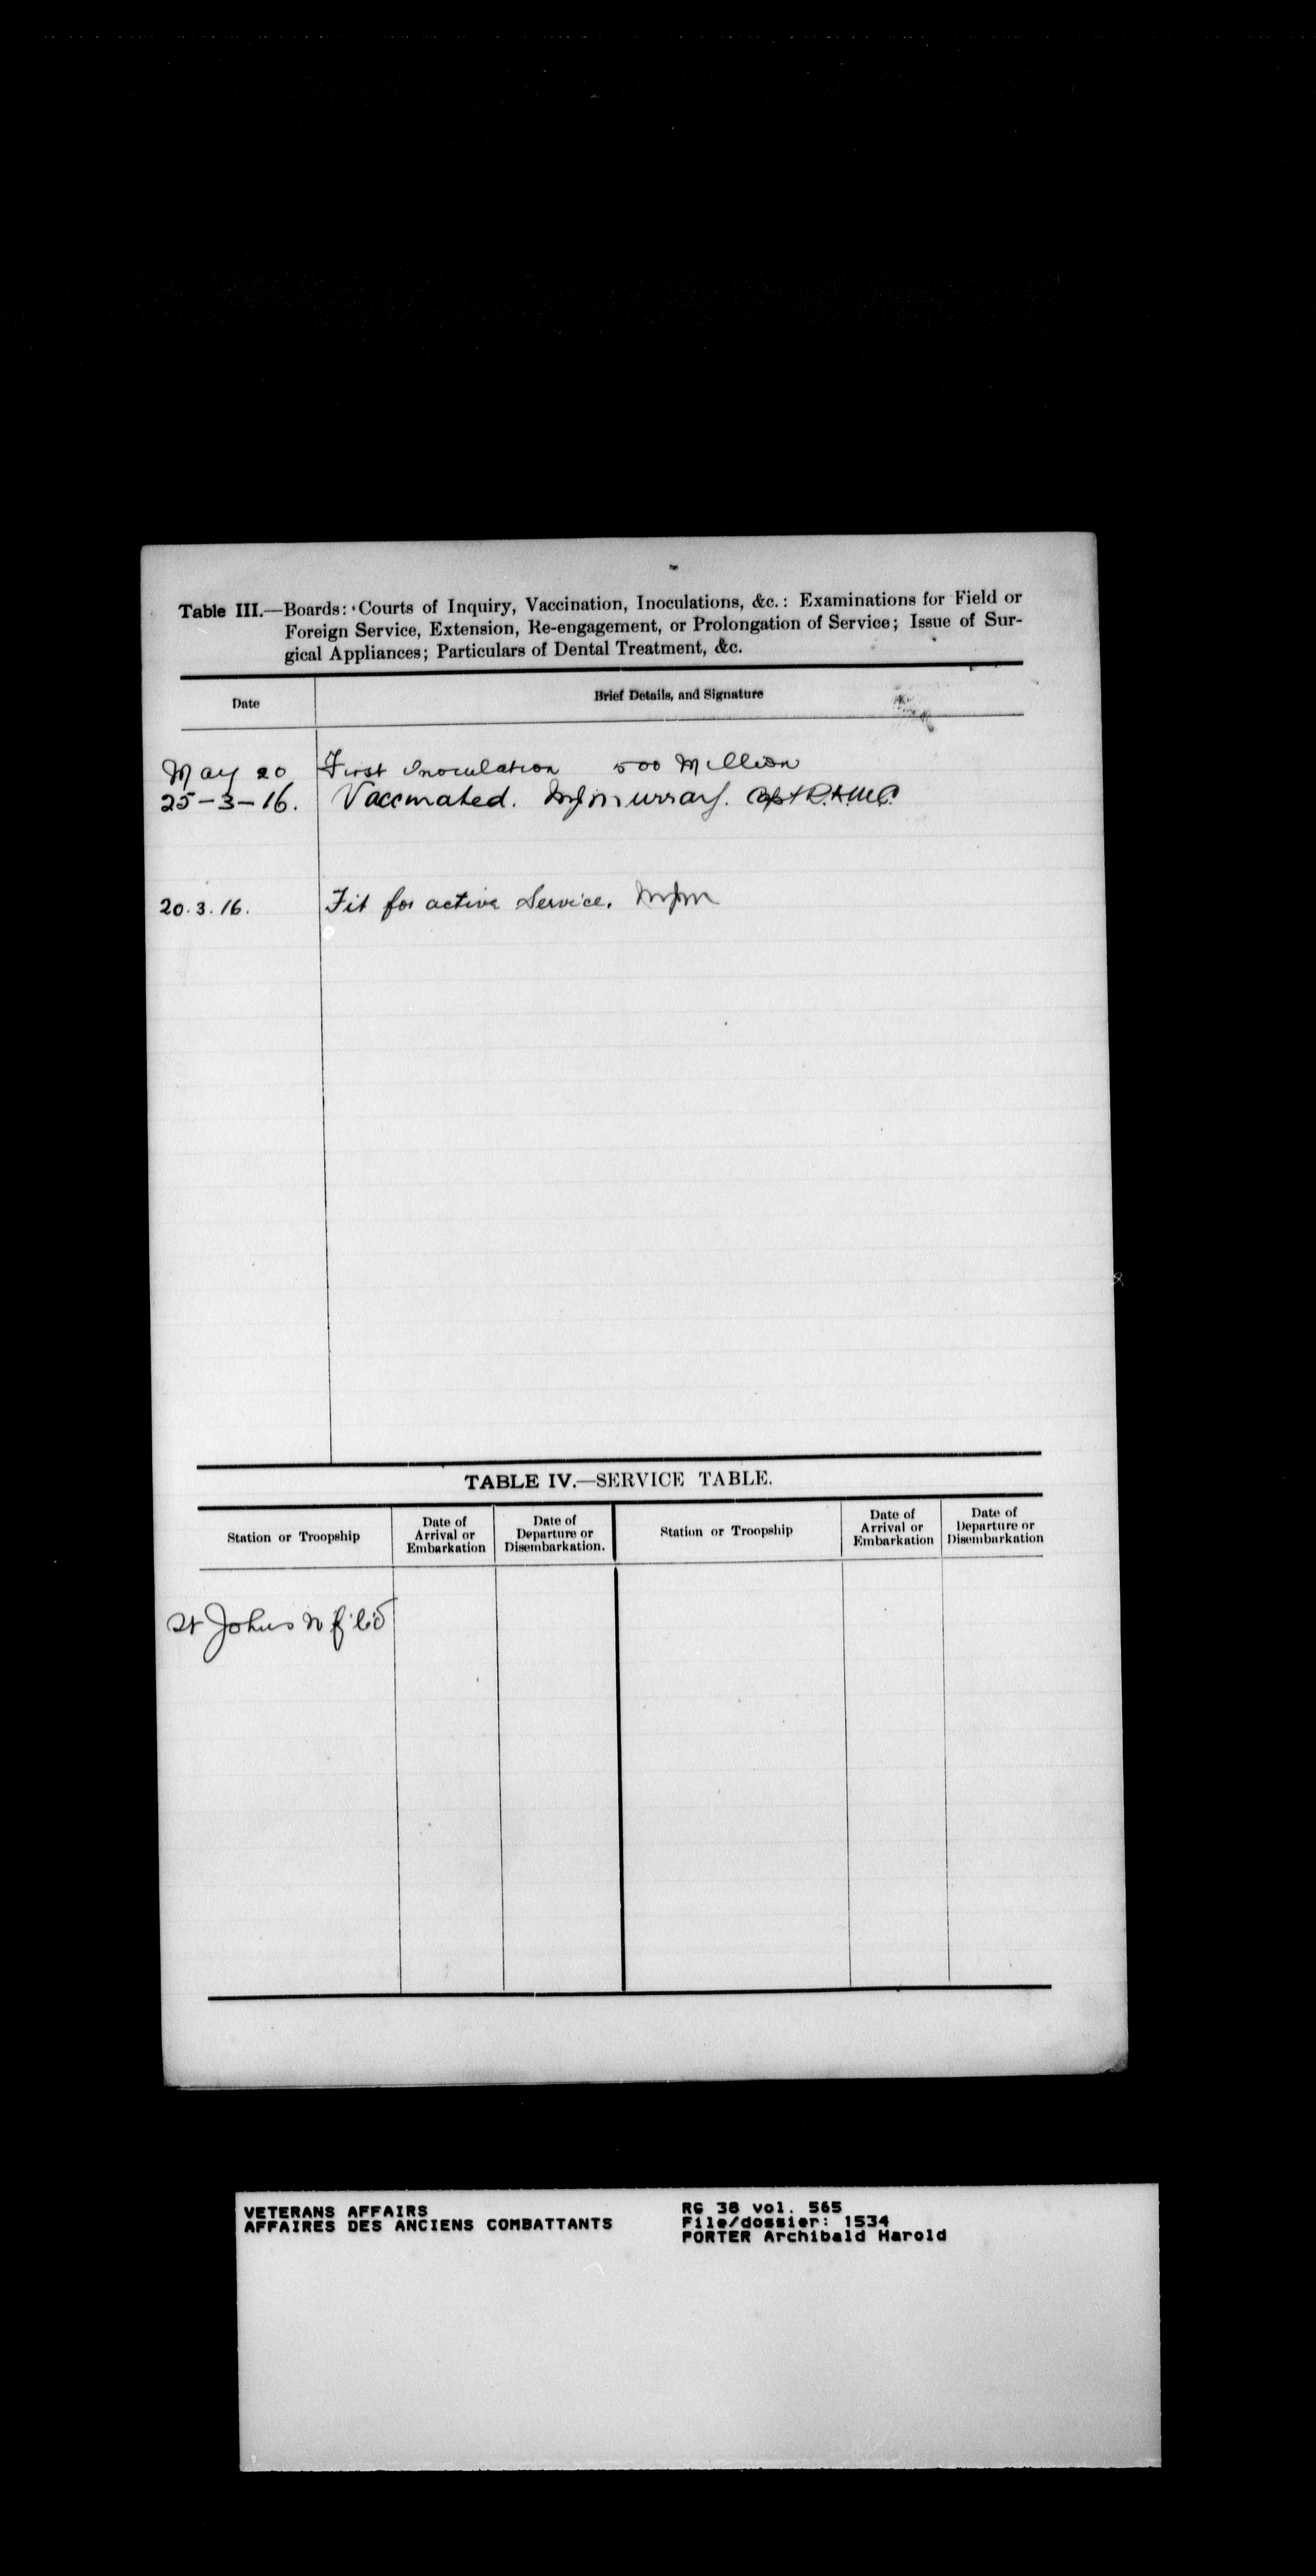 Table III.—Boards: Courts of Inquiry, Vaccination, Inoculations, &c.: Examinations for Field or
Foreign Service, Extension, Re-engagement, or Prolongation of Service; Issue of Sur-
gical Appliances; Particulars of Dental Treatment, &c.
Date
Brief Details, and Signature
May 20 First Inoculation 500 Million
25-3-16. Vaccinated. Murray. Capt R.A.M.C.
20.3.16. Fit for active Service.
TABLE IV.—SERVICE TABLE.
Station or Troopship
Date of
Arrival or
Embarkation
Date of
Departure or
Disembarkation.
Station or Troopship
Date of
Arrival or
Embarkation
Date of
Departure or
Disembarkation
St Johns Nfld
VETERANS AFFAIRS
AFFAIRES DES ANCIENS COMBATTANTS
RG 38 vol. 565
File/dossier: 1534
PORTER Archibald Harold